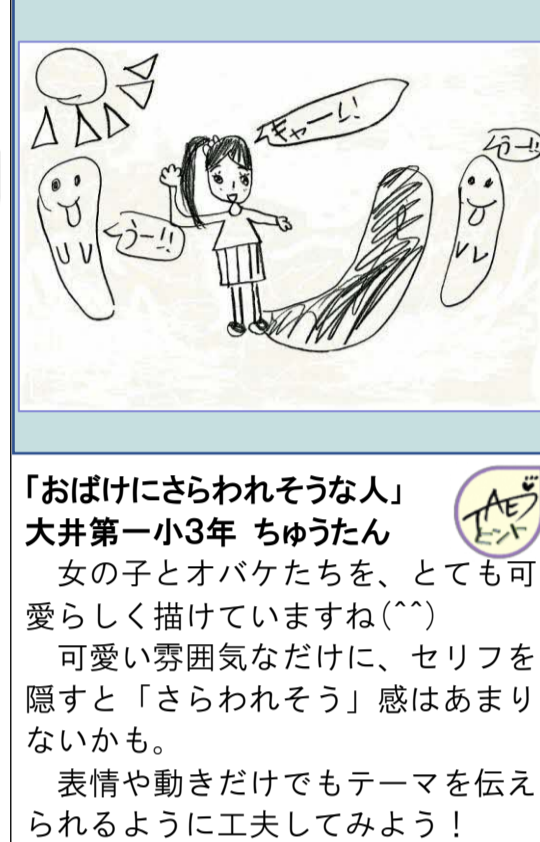 キャーッ!
うー!!
うー!!
「おばけにさらわれそうな人」
大井第一小3年 ちゅうたん
TAEラ
ヒント
女の子とオバケたちを、とても可
愛らしく描けていますね(^^)
可愛い雰囲気なだけに、セリフを
隠すと「さらわれそう」感はあまり
ないかも。
表情や動きだけでもテーマを伝え
られるように工夫してみよう！